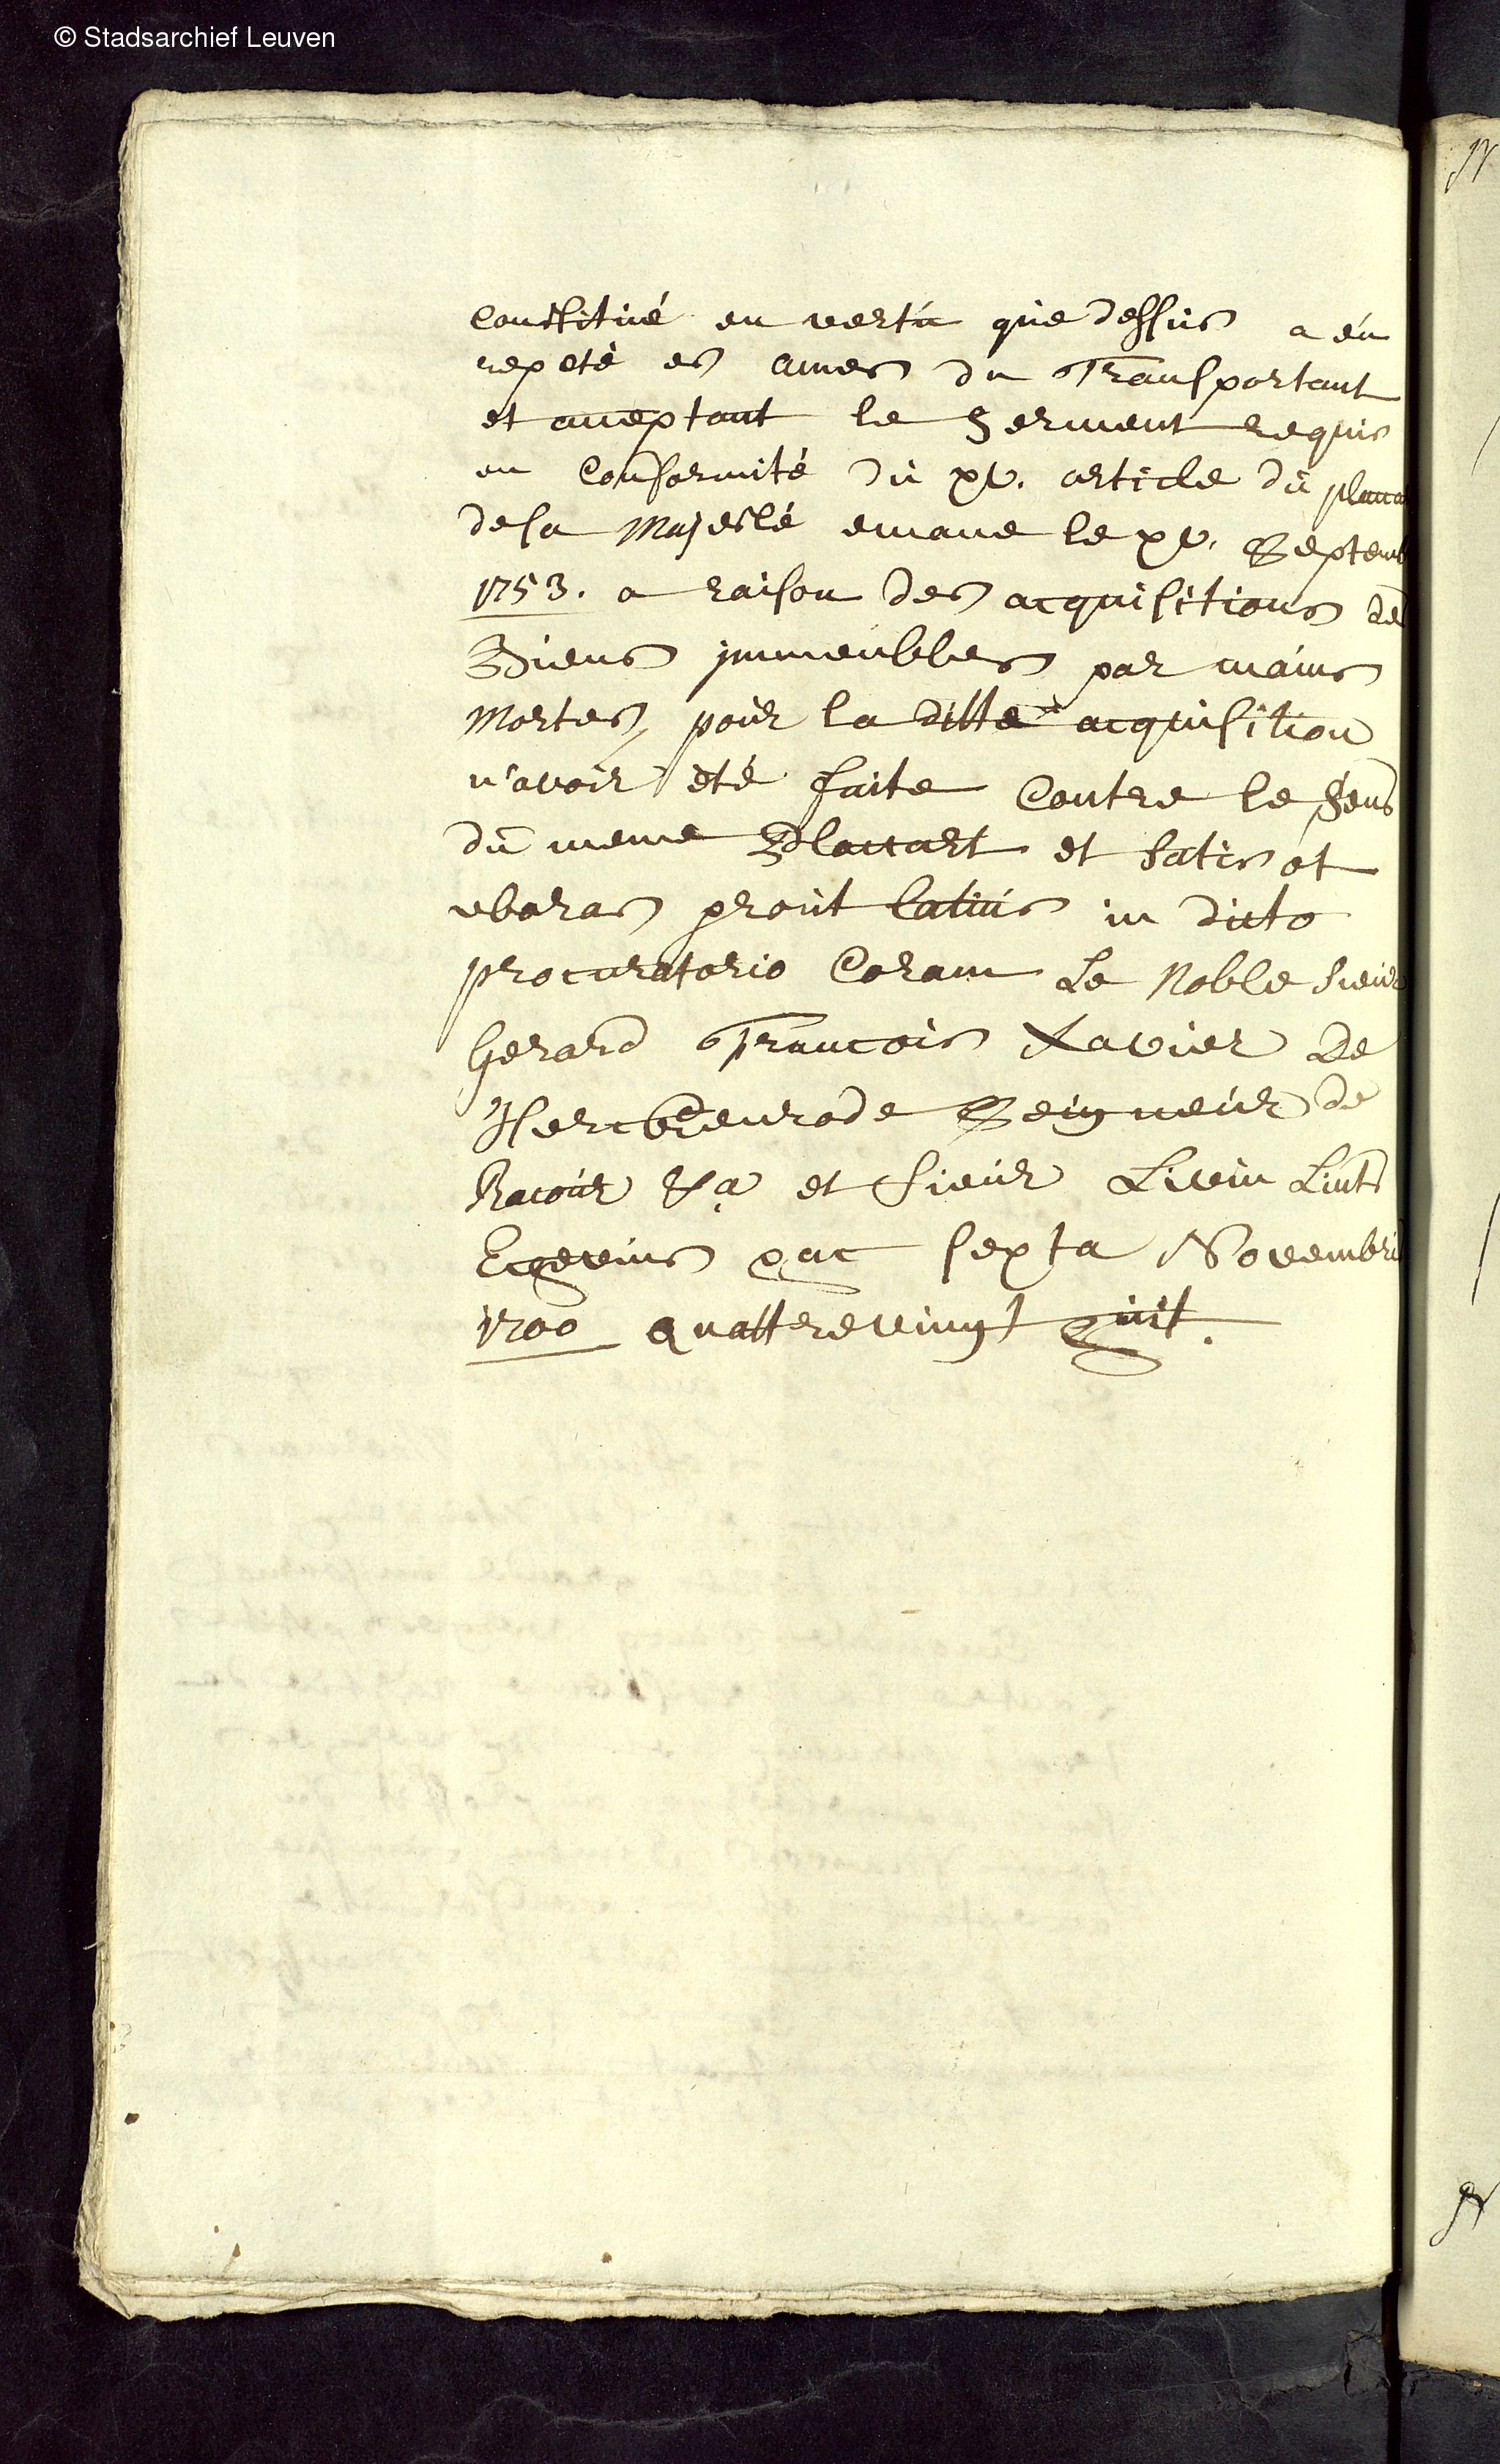 © Stadsarchief Leuven
Constitué en vertu que dessus a eu
repeté es ames du Transportant
et acceptant le Serment requis
en Conformité du xv. article du placca
de sa Majesté emane le xv. Septemb
1753. a raison des acquisitions de
Biens immeubles par mains
Mortes, pour la ditte acquisition
n'avoir été faite Contre le sens
du meme Placcart et satis et
waras prout latius in dicto
procuratorio Coram Le Noble sieur
Gerard Francois Xavier De
Herckenrode Seigneur de
Racour &a et sieur Livin Lints
Ecevins hac sexta Novembris
1700 quattrevingt huit.